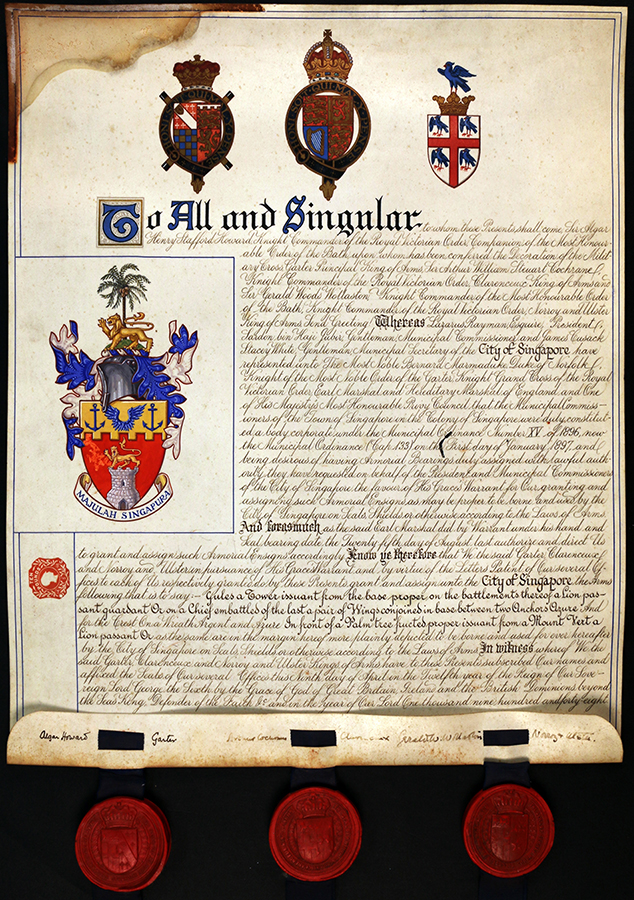 HONI SOIT QUI MAL Y PENSE
HONI SOIT QUI MAL Y PENSE
To All and Singular to whom these Presents shall come, Sir Algar
Henry Stafford Howard, Knight Commander of the Royal Victorian Order, Companion of the Most Honour-
able Order of the Bath, upon whom has been conferred the Decoration of the Milit-
ary Cross, Garter Principal King of Arms, Sir Arthur William Steuart Cochrane,
Knight Commander of the Royal Victorian Order, Clarenceux King of Arms and
Sir Gerald Woods Wollaston, Knight Commander of the Most Honourable Order
of the Bath, Knight Commander of the Royal Victorian Order, Norroy and Ulster
King of Arms Send Greeting Whereas Lazarus Rayman, Esquire, President,
Pardon bin Haji Gentleman, Municipal Commissioner and James Cusack
Stacey White, Gentleman, Municipal Secretary of the City of Singapore have
represented unto The Most Noble Bernard Marmaduke Duke of Norfolk,
Knight of the Most Noble Order of the Garter, Knight Grand Cross of the Royal
Victorian Order, Earl Marshal and Hereditary Marshal of England, and One
of His Majesty's Most Honourable Privy Council, that the Municipal Commiss-
ioners of the Town of Singapore in the Colony of Singapore were duly constitut-
ed a body corporate under the Municipal Ordinance Number XV of 1896, now
the Municipal Ordinance (Cap. 133) on the First day of January 1897, and
being desirous of having Armorial Bearings duly assigned with lawful auth-
ority, they have requested on behalf of the President and Municipal Commissioners
of the City of Singapore, the favour of His Grace's Warrant for Our granting and
assigning such Armorial Ensigns as may be proper to be borne and used by the
City of Singapore on Seals Shields or otherwise according to the Laws of Arms.
And forasmuch as the said Earl Marshal did by Warrant under his hand and
Seal bearing date the Twenty fifth day of August last authorize and direct Us
to grant and assign such Armorial Ensigns accordingly Know ye therefore that We the said Garter, Clarenceux
and Norroy and Ulster in pursuance of His Grace's Warrant and by virtue of the Letters Patent of Our several Of-
fices to each of Us respectively granted do by these Presents grant and assign unto the City of Singapore the Arms
following that is to say:— Gules a Tower issuant from the base proper on the battlements thereof a Lion pas-
sant guardant Or on a Chief embattled of the last a pair of Wings conjoined in base between two Anchors Azure And
for the Crest On a Wreath Argent and Azure In front of a Palm tree fructed proper issuant from a Mount Vert a
Lion passant Or as the same are in the margin hereof more plainly depicted to be borne and used for ever hereafter
by the City of Singapore on Seals Shields or otherwise according to the Laws of Arms In witness whereof We the
said Garter, Clarenceux and Norroy and Ulster Kings of Arms have to these Presents subscribed Our names and
affixed the Seals of Our several Offices this Tenth day of April in the Twelfth year of the Reign of Our Sove-
reign Lord George the Sixth by the Grace of God of Great Britain, Ireland and the British Dominions beyond
the Seas King, Defender of the Faith &c and in the Year of Our Lord One thousand nine hundred and forty eight.
MAJULAH SINGAPURA
Algar Howard Garter